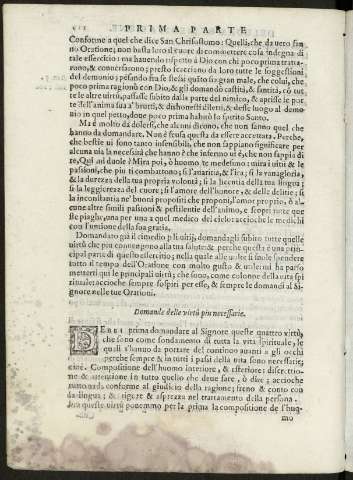 PRIMA PARTE
Conforme a quel che dice San Chrisostomo: Quelli, che da vero fanno Oratione; non basta loro il cuore di commettere cosa indegna di
tale essercitio: ma hauendo rispetto à Dio con chi poco prima trattarono, & conuersarono; presto scacciano da loro tutte le suggestioni
del demonio; pesando fra se stessi quanto sia gran male, che colui, che
poco prima ragionò con Dio, & gli domandò castità, & santità, cō tutte le altre virtù, passasse subito dalla parte del nimico, & aprisse le porte dell'anima sua a' brutti, & dishonesti diletti, & desse luogo al demonio in quel petto, doue poco prima habitò lo spirito Santo.
Ma è molto da dolersi, che alcuni dicono, che non sanno quel che
hanno da domandare. Non è scusa questa da essere accettata. Perche,
che bestie ui sono tanto insensibili, che non sappiano significare per
alcuna uia la necessità che hanno? che infermo ui è, che non sappia dire, Quì mi duole? Mira poi, ò huomo te medesimo; mira i uitij & le
passioni, che piu ti combattono; s'l'auaritia, & l'ira; sì la uanagloria,
& la durezza della tua propria volontà; sì la licentia della tua lingua;
sì la leggierezza del cuore; sì l'amore dell'honore, & delle delitie; sì
la inconstantia ne' buoni propositi che proponi, l'amor proprio, ò alcune altre simili passioni & pestilentie dell'animo, e scopri tutte queste piaghe, una per una a quel medico del cielo: accioche le medichi
con l'untione della sua gratia.
Domandato già il rimedio pe i uitij, domandagli subito tutte quelle
virtù che piu conuengono alla tua salute: & perche questa è una principal parte di questo essercitio; nella quale alle uolte si suole spendere
tutto il tempo dell'Oratione con molto gusto & utile; mi ha parso
metterti qui le principali uirtù; che sono, come colonne della uita spirituale: acciò che sempre sospiri per esse, & sempre le domandi al Signore nelle tue Orationi.
Domande delle virtù piu necessarie.
DEBBI prima domandare al Signore queste quattro virtù,
che sono come fondamento di tutta la vita spirituale, le
quali l'huomo ha da portare del continuo auanti a gli occhi
perche sempre & in tutti i passi della vita sono necessarie;
cioè. Compositione dell'huomo interiore, & esteriore: discrettione & attentione in tutto quello che deue fare, ò dire; acciò che
tutto uada conforme al giudicio della ragione; freno & conto della lingua; & rigore & asprezza nel trattamento della persona.
Fra queste virtù ponemmo per la prima la compositione de l'huomo